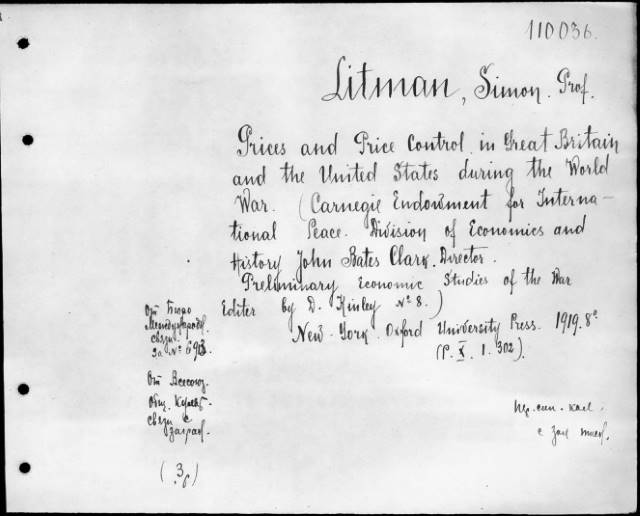 110036.
Litman, Simon. Prof.
Prices and Price Control in Great Britain
and the United States during the World
War. (Carnegie Endowment for Interna-
tional Peace. Division of Economics and
History John Bates Clark. Director.
Preliminary Economic Studies of the War
Editer by D. Kinley № 8.)
New-York. Oxford University Press. 1919. 8°
(P. X. 1. 302).
От Бюро
Междунар
связи.
за № 693.
От Всесоюз.
Общ. Культ.
связи с
заграц.
(3/6)